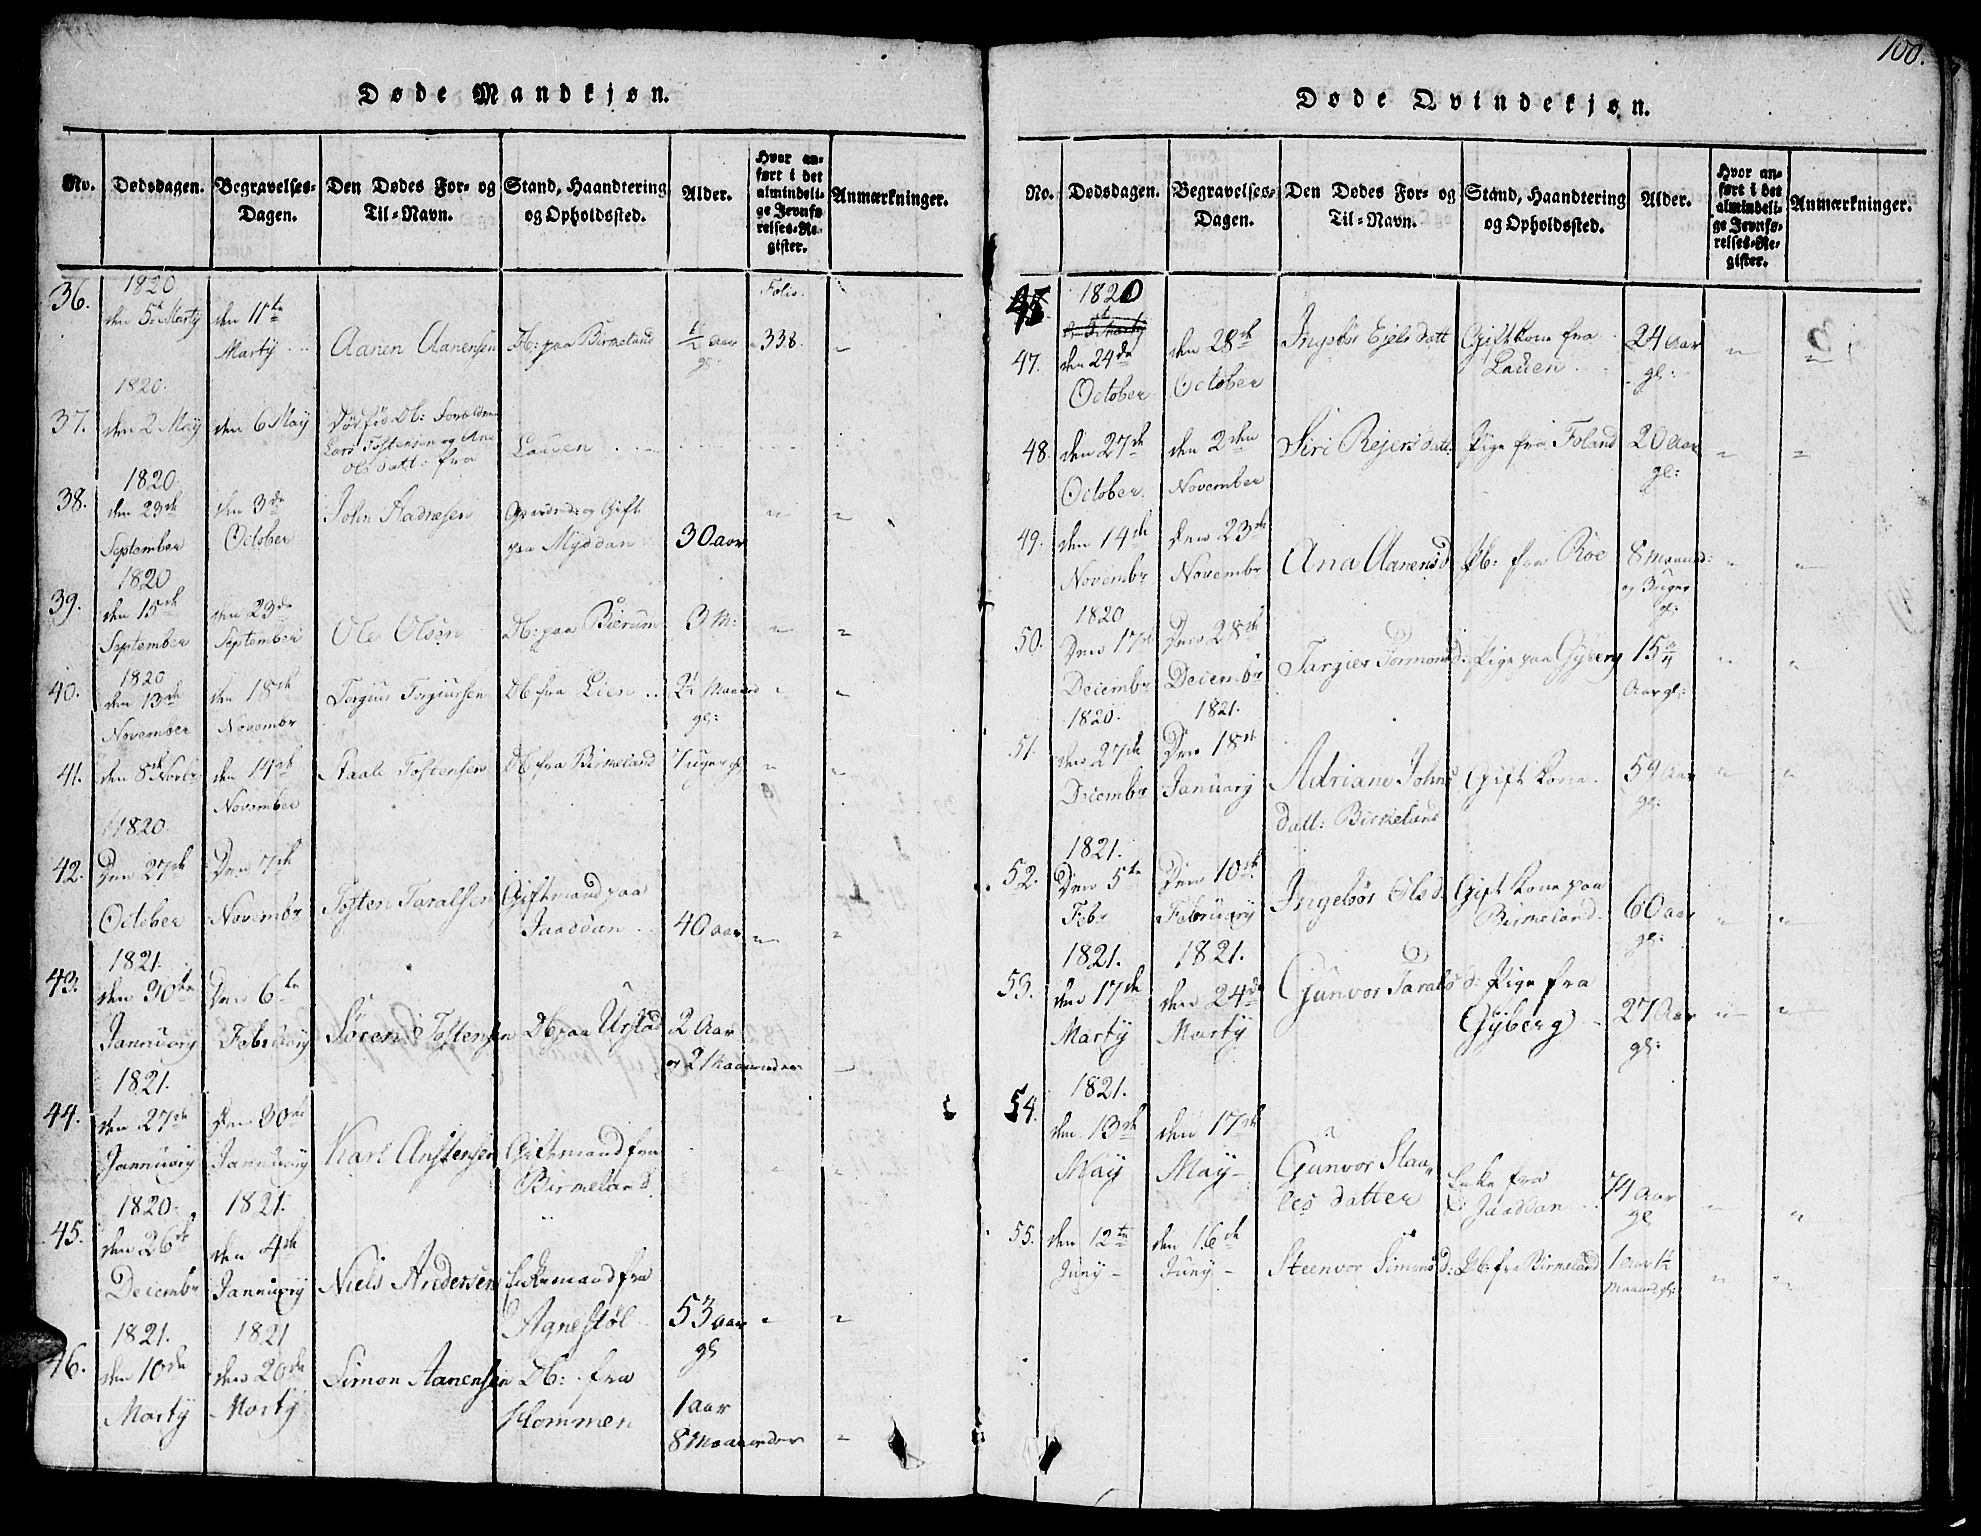 100.
Døde Mandkjøn.
No. Dødsdagen. Begravelses-Dagen. Den Dødes For- og Til-Navn. Stand, Haandtering og Opholdssted. Alder. Hvor anført i det almindelige Jevnførelses-Register. Anmærkninger.
1820
36. den 5te Martÿ den 11te Martÿ Aanen Aanensen Db: paa Birmeland 1/2 Aar gl: Folio. 338. "
1820.
37. den 2 Maÿ den 6 Maÿ Dødfød Db: Forældre
Lars Tostensen og Ane
Olsdatt: fra Lauen
1820.
38. den 23de September den 3de October John Gift
paa Mÿddan 30 aar " "
1820
39. den 15de September den 23de September Ole Olsen Db: paa Bierum 3 M: " "
1820
40. den 13de November den 18de November Torgius Torgiursen Db fra Lien 2 1/2 Maaned gl: " "
41. den 8de Novbr den 14de November Staale Tostensen Db fra Birmeland 7 uger gl " "
1820.
42. Den 27de October Den 7de Novembr Tosten Taralsen Giftmand paa
Jaaddan 40 aar " "
1821.
43. den 30te Januarÿ Den 6te Februarÿ Søren Tostensen Db paa Urstad 2 Aar
og 2 Maaneder "
1821.
44. den 27de Januarÿ Den 30te Januarÿ Karl Anstensen Giftmand fra
Birmeland. " "
1820. 1821.
45. den 26de Decembr den 4de Januarÿ Niels Andersen Enkemand fra
Agnestøl 53 aar gl " "
1821. 1821
46. den 10de Martÿ den 20de Martÿ Simon Aanensen Db: fra
Hommen 1 aar
8 Maaneder "
Døde Qvindekjøn.
No. Dødsdagen. Begravelses-Dagen. Den Dødes For- og Til-Navn. Stand, Haandtering og Opholdssted. Alder. Hvor anført i det almindelige Jevnførelses-Register. Anmærkninger.
1820
47. den 24de October den 28de October Ingebør Ejelsdatt Giftkone fra
Lauen 24 Aar gl: " "
48. den 27de October. den 2den November Siri Rejersdatt Pige fra Foland 20 Aar gl: " "
49. den 14de Novembr den 23de Novembr Ana Aanensd Pb: fra Roe 8 Maaned:
og 3 uger gl: " "
1820
50. Den 17de Decembr Den 28de Decembr Targier Tormonsd: Pige paa Gÿberg 15
Aar gl: " "
1820. 1821.
51. den 27de Decembr Den 18de Januarÿ Adriane Johns
datt: Birkeland Gift kone. 59 Aar gl: " "
1821.
52. Den 5te Febr Den 10de Februarÿ Ingebør Olsd. Gift kone paa
Birmeland. 60 aar gl: " "
1821. 1821.
53. den 17de Martÿ den 24de Martÿ Gunvor Taralsd: Pige fra
Gÿberg 27 Aar gl: " "
1821.
54. den 13de Maÿ den 17de Maÿ Gunvor Staa
lesdatter Enke fra
Jaaddan 74 aar gl " "
55. den 12te Junÿ den 16de Junÿ Steenvor Simonsd: Pb: fra Birmeland 1 aar 1
Maaned gl: " "